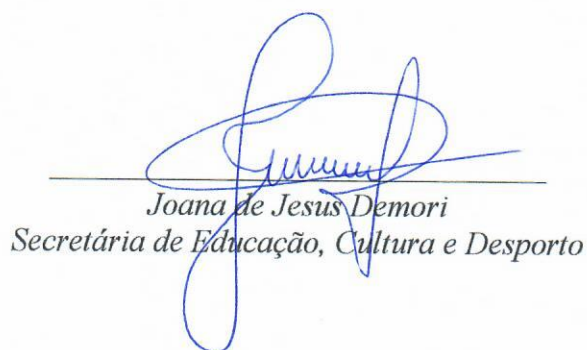 Joana de Jesus Demori
Secretária de Educação, Cultura e Desporto